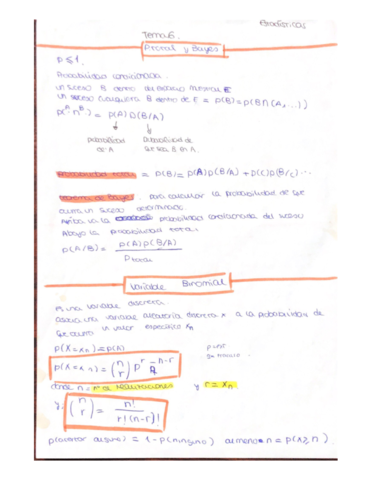 Tema 6
P total y Bayes
P ≤ 1
Probabilidad condicionada
un suceso B dentro del espacio muestral E
un suceso cualquiera B dentro de E = p(B) = p(B∩(A,...))
p(A∩B) = p(A) p(B/A)
probabilidad de A
probabilidad de que sea B en A
Probabilidad total = p(B) = p(A)p(B/A) + p(C)p(B/C)...
Teorema de Bayes, para calcular la probabilidad de que
ocurra un suceso determinado
Arriba va la probabilidad condicionada del suceso
Abajo la probabilidad total
p(A/B) = p(A)p(B/A)
P total
Variable Binomial
Es una variable discreta
Asocia una variable aleatoria discreta x a la probabilidad de
que ocurra un valor específico Xn
p(X = xn) = p(A)
p(X = x n) = (n r) p r q n-r
donde n = nº de repeticiones y r = Xn
y (n r) = n! / r!(n-r)!
p(acertar alguno) = 1 - p(ninguno) al menos n = p(x ≥ n)